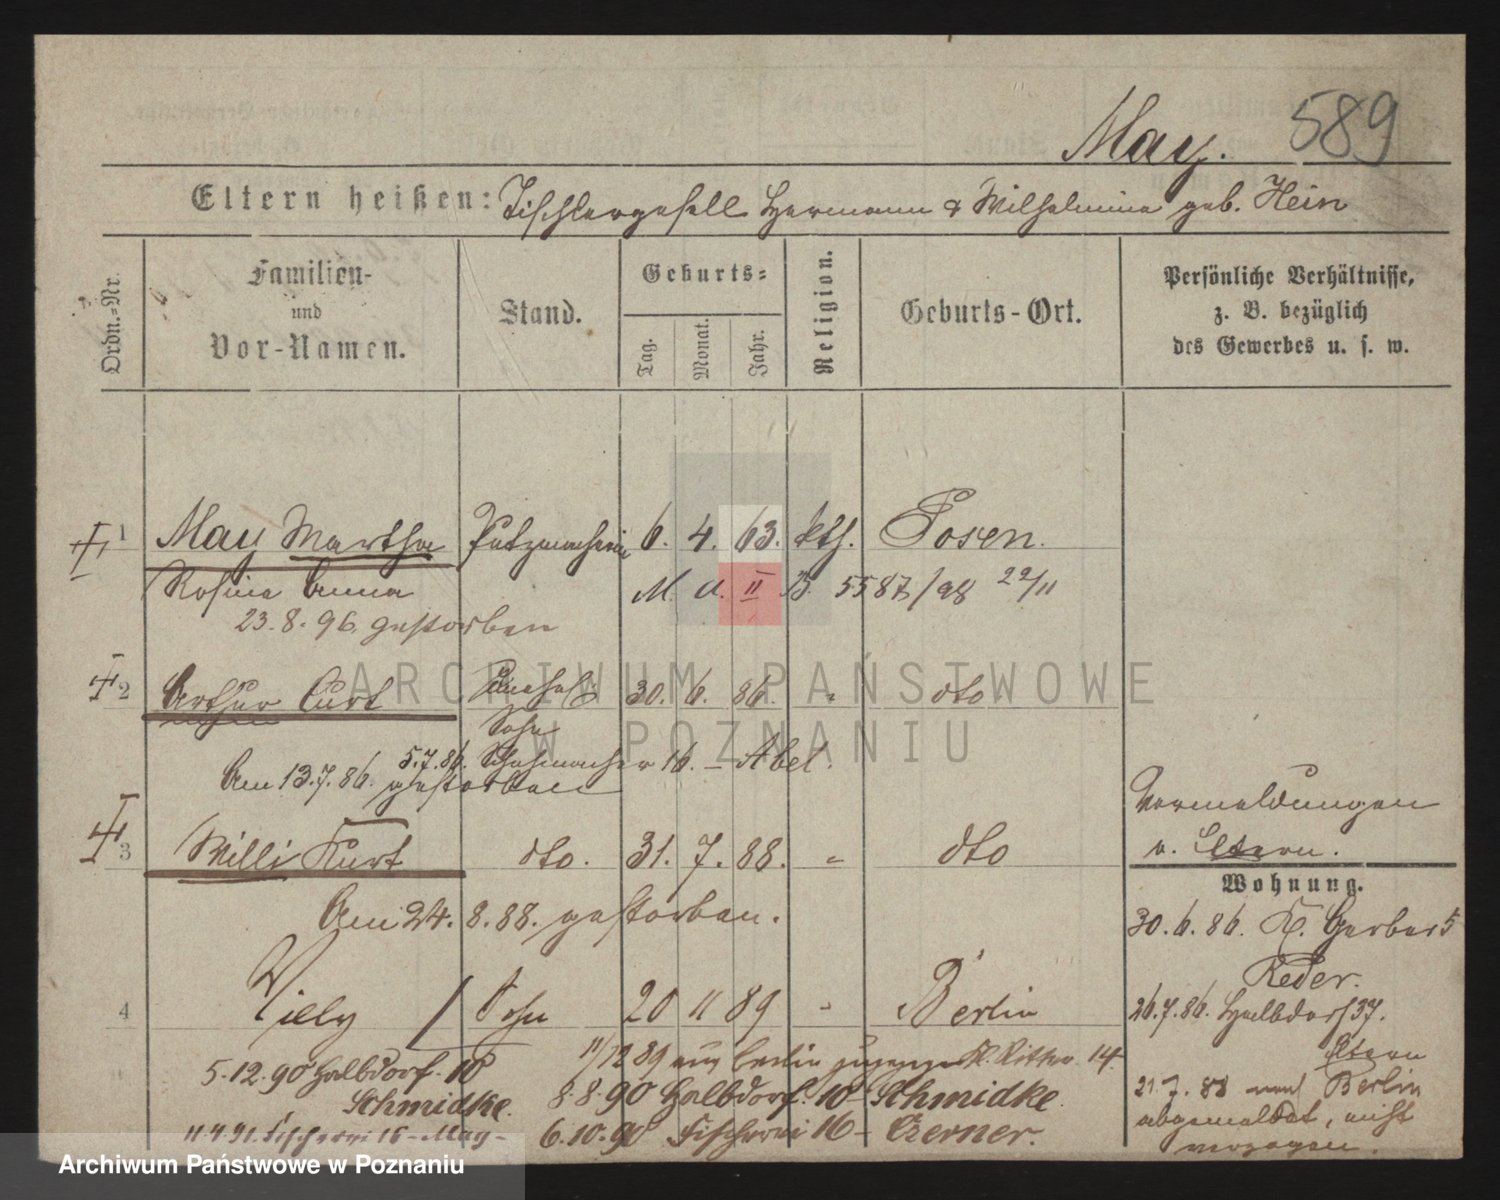 May. 589
Eltern heißen: Tischlergesell Hermann & Wilhelmine geb. Hein
Ordn.-Nr.
Familien-
und
Vor-Namen.
Stand.
Geburts-
Tag.
Monat.
Jahr.
Religion.
Geburts-Ort.
Persönliche Verhältnisse,
z. B. bezüglich
des Gewerbes u. s. w.
1 May Martha Putzmacherin 6. 4. 63. kth. Posen.
Rosina Anna M. a. II B. 5587/98 22/11
23.8.96. gestorben
2 Arthur Curt 30. 6. 86. " dto
Sohn
5.7.86. Schuhmacher 16. – Abel.
Am 13.7.86. gestorben
Vermeldungen
v. Eltern.
3 Willi Kurt dto. 31. 7. 88. " dto
Wohnung.
Am 24. 8. 88. gestorben.
30.6.86. K. Gerber 5
Reder.
4 Willy / Sohn 20 11 89 " Berlin
26.7.86. Halbdorf 37.
Eltern
11/12 89 aus Berlin zugezogen Kl. Ritter. 14.
5.12.90 Halbdorf. 10
Schmidke.
8.8.90 Halbdorf. 10 Schmidke.
21.7.88 nach Berlin
abgemeldet, nicht
verzogen.
11.4.91. Fischerei 16 – May –
6.10.90 Fischerei 16 – Czerner.
ARCHIWUM PAŃSTWOWE
W POZNANIU
Archiwum Państwowe w Poznaniu